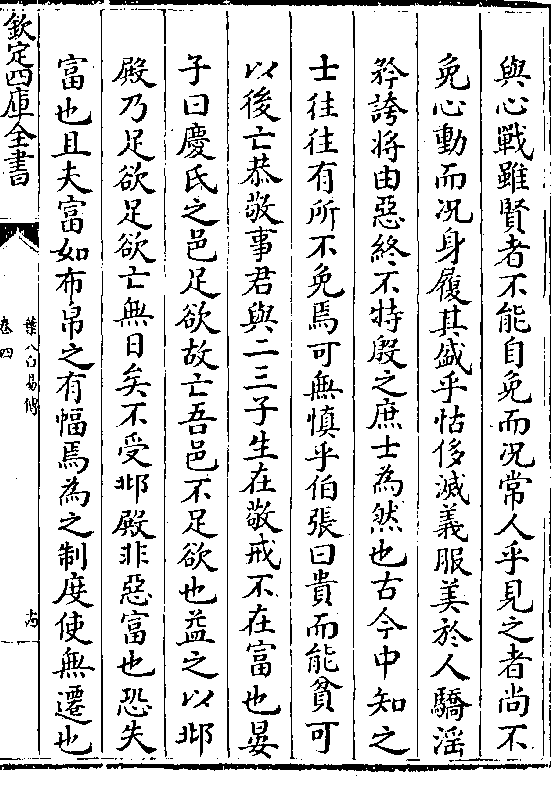 與心戰雖賢者不能自免而况常人乎見之者尚不
免心動而况身履其盛乎怙侈滅義服美於人驕淫
矜誇将由惡終不特殷之庶士為然也古今中知之
士往往有所不免焉可無慎乎伯張曰貴而能貧可
以後亡恭敬事君與二三子生在敬戒不在富也晏
子曰慶氏之邑足欲故亡吾邑不足欲也益之以邶
殿乃足欲足欲亡無日矣不受邶殿非惡富也恐失
富也且夫富如布帛之有幅焉為之制度使無遷也
欽定四庫全書
葉八白易傳
卷四